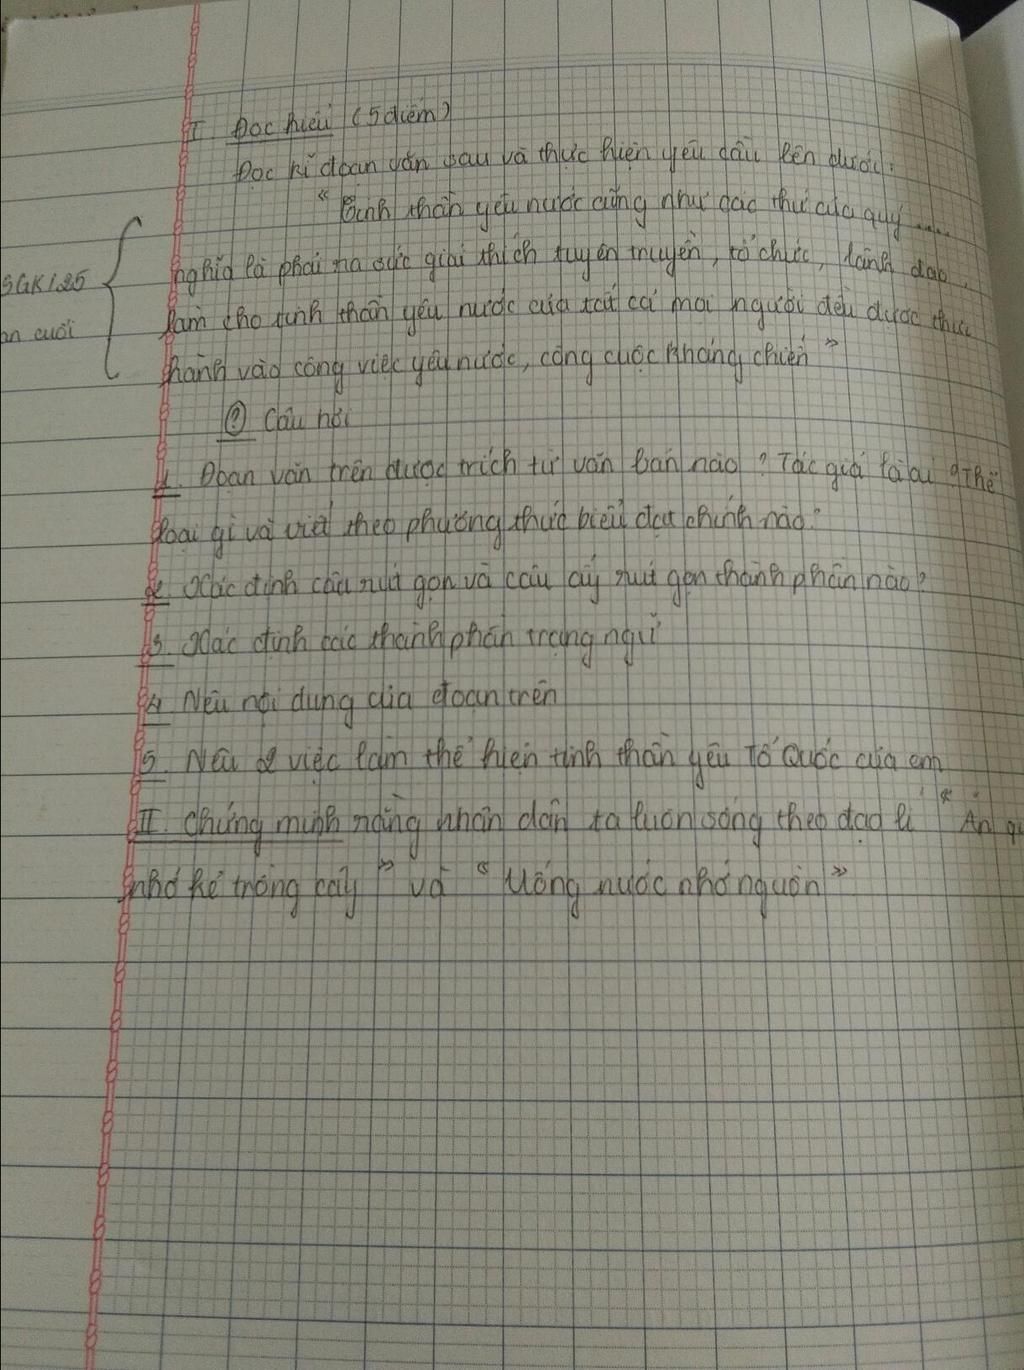 I. Đọc hiểu (5 điểm)
Đọc kĩ đoạn văn sau và thực hiện yêu cầu bên dưới:
"Tinh thần yêu nước cũng như các thứ của quý .....
SGK/25
nghĩa là phải ra sức giải thích tuyên truyền, tổ chức, lãnh đạo,
làm cho tinh thần yêu nước của tất cả mọi người đều được thực
cuối
hành vào công việc yêu nước, công cuộc kháng chiến"
? Câu hỏi
1. Đoạn văn trên được trích từ văn bản nào? Tác giả là ai? Thể
loại gì và viết theo phương thức biểu đạt chính nào?
2. Xác định câu rút gọn và câu ấy rút gọn thành phần nào?
3. Xác định các thành phần trạng ngữ
4. Nêu nội dung của đoạn trên
5. Nêu 2 việc làm thể hiện tinh thần yêu Tổ Quốc của em
II. Chứng minh rằng nhân dân ta luôn sống theo đạo lí "Ăn
nhớ kẻ trồng cây" và "Uống nước nhớ nguồn"